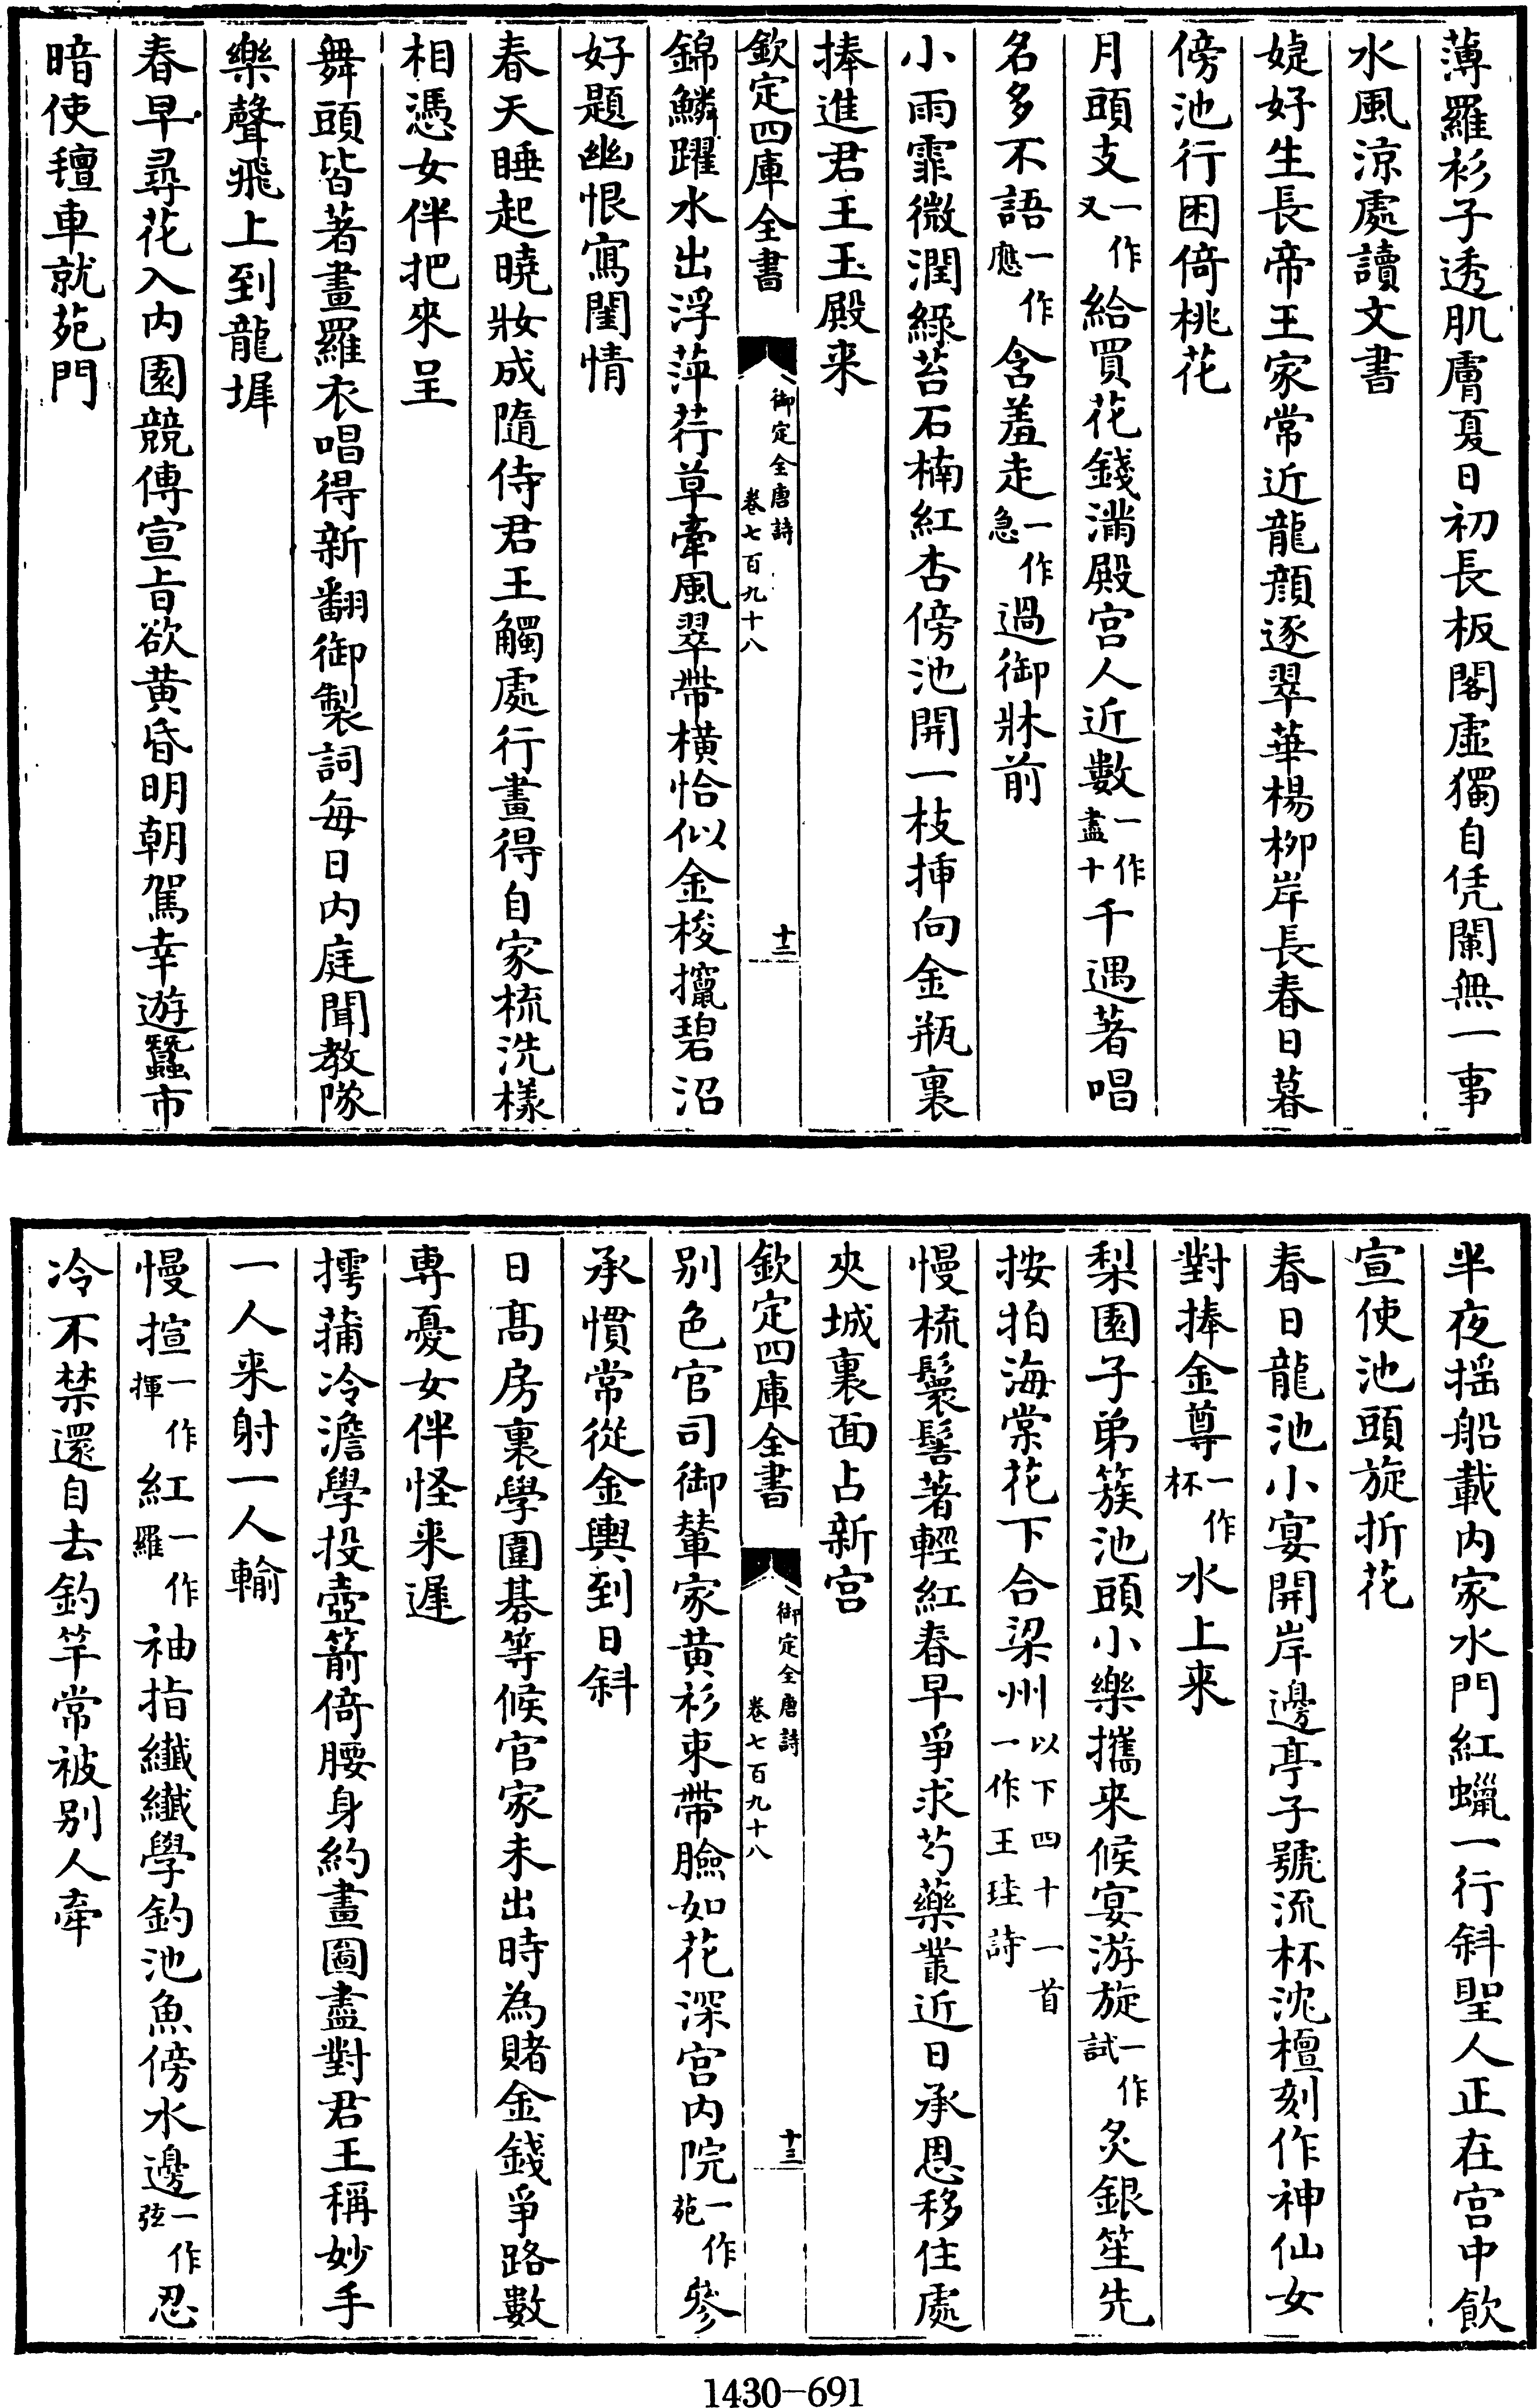 薄羅衫子透肌膚夏日初長板閣虛獨自凭闌無一事
水風涼處讀文書
婕妤生長帝王家常近龍顏逐翠華楊柳岸長春日暮
傍池行困倚桃花
月頭支一作又給買花錢滿殿宮人近數一作盡十千遇著唱
名多不語一作應含羞走一作急過御牀前
小雨霏微潤綠苔石楠紅杏傍池開一枝揷向金瓶裏
捧進君王玉殿来
欽定四庫全書 御定全唐詩 卷七百九十八 十二
錦鱗躍水出浮萍荇草牽風翠帶橫恰似金梭攛碧沼
好題幽恨寫閨情
春天睡起曉妝成隨侍君王觸處行畫得自家梳洗樣
相憑女伴把來呈
舞頭皆著畫羅衣唱得新翻御製詞每日內庭聞教隊
樂聲飛上到龍墀
春早尋花入內園競傳宣旨欲黄昏明朝駕幸遊蠶市
暗使氊車就苑門
半夜搖船載內家水門紅蠟一行斜聖人正在宮中飲
宣使池頭旋折花
春日龍池小宴開岸邊亭子號流杯沈檀刻作神仙女
對捧金尊一作杯水上来
梨園子弟簇池頭小樂攜来候宴游旋一作試炙銀笙先
按拍海棠花下合梁州以下四十一首一作王珪詩
慢梳鬟髻著輕紅春早爭求芍藥叢近日承恩移住處
夾城裏面占新宮
欽定四庫全書 御定全唐詩 卷七百九十八 十三
别色官司御輦家黄衫束帶臉如花深宮內院一作苑參
承慣常從金輿到日斜
日髙房裏學圍碁等候官家未出時為賭金錢爭路數
專憂女伴怪来遲
摴蒱冷澹學投壺箭倚腰身約畫圖盡對君王稱妙手
一人来射一人輸
慢揎一作揮紅一作羅袖指纖纖學釣池魚傍水邊一作弦忍
冷不禁還自去釣竿常被别人牽
1430—691